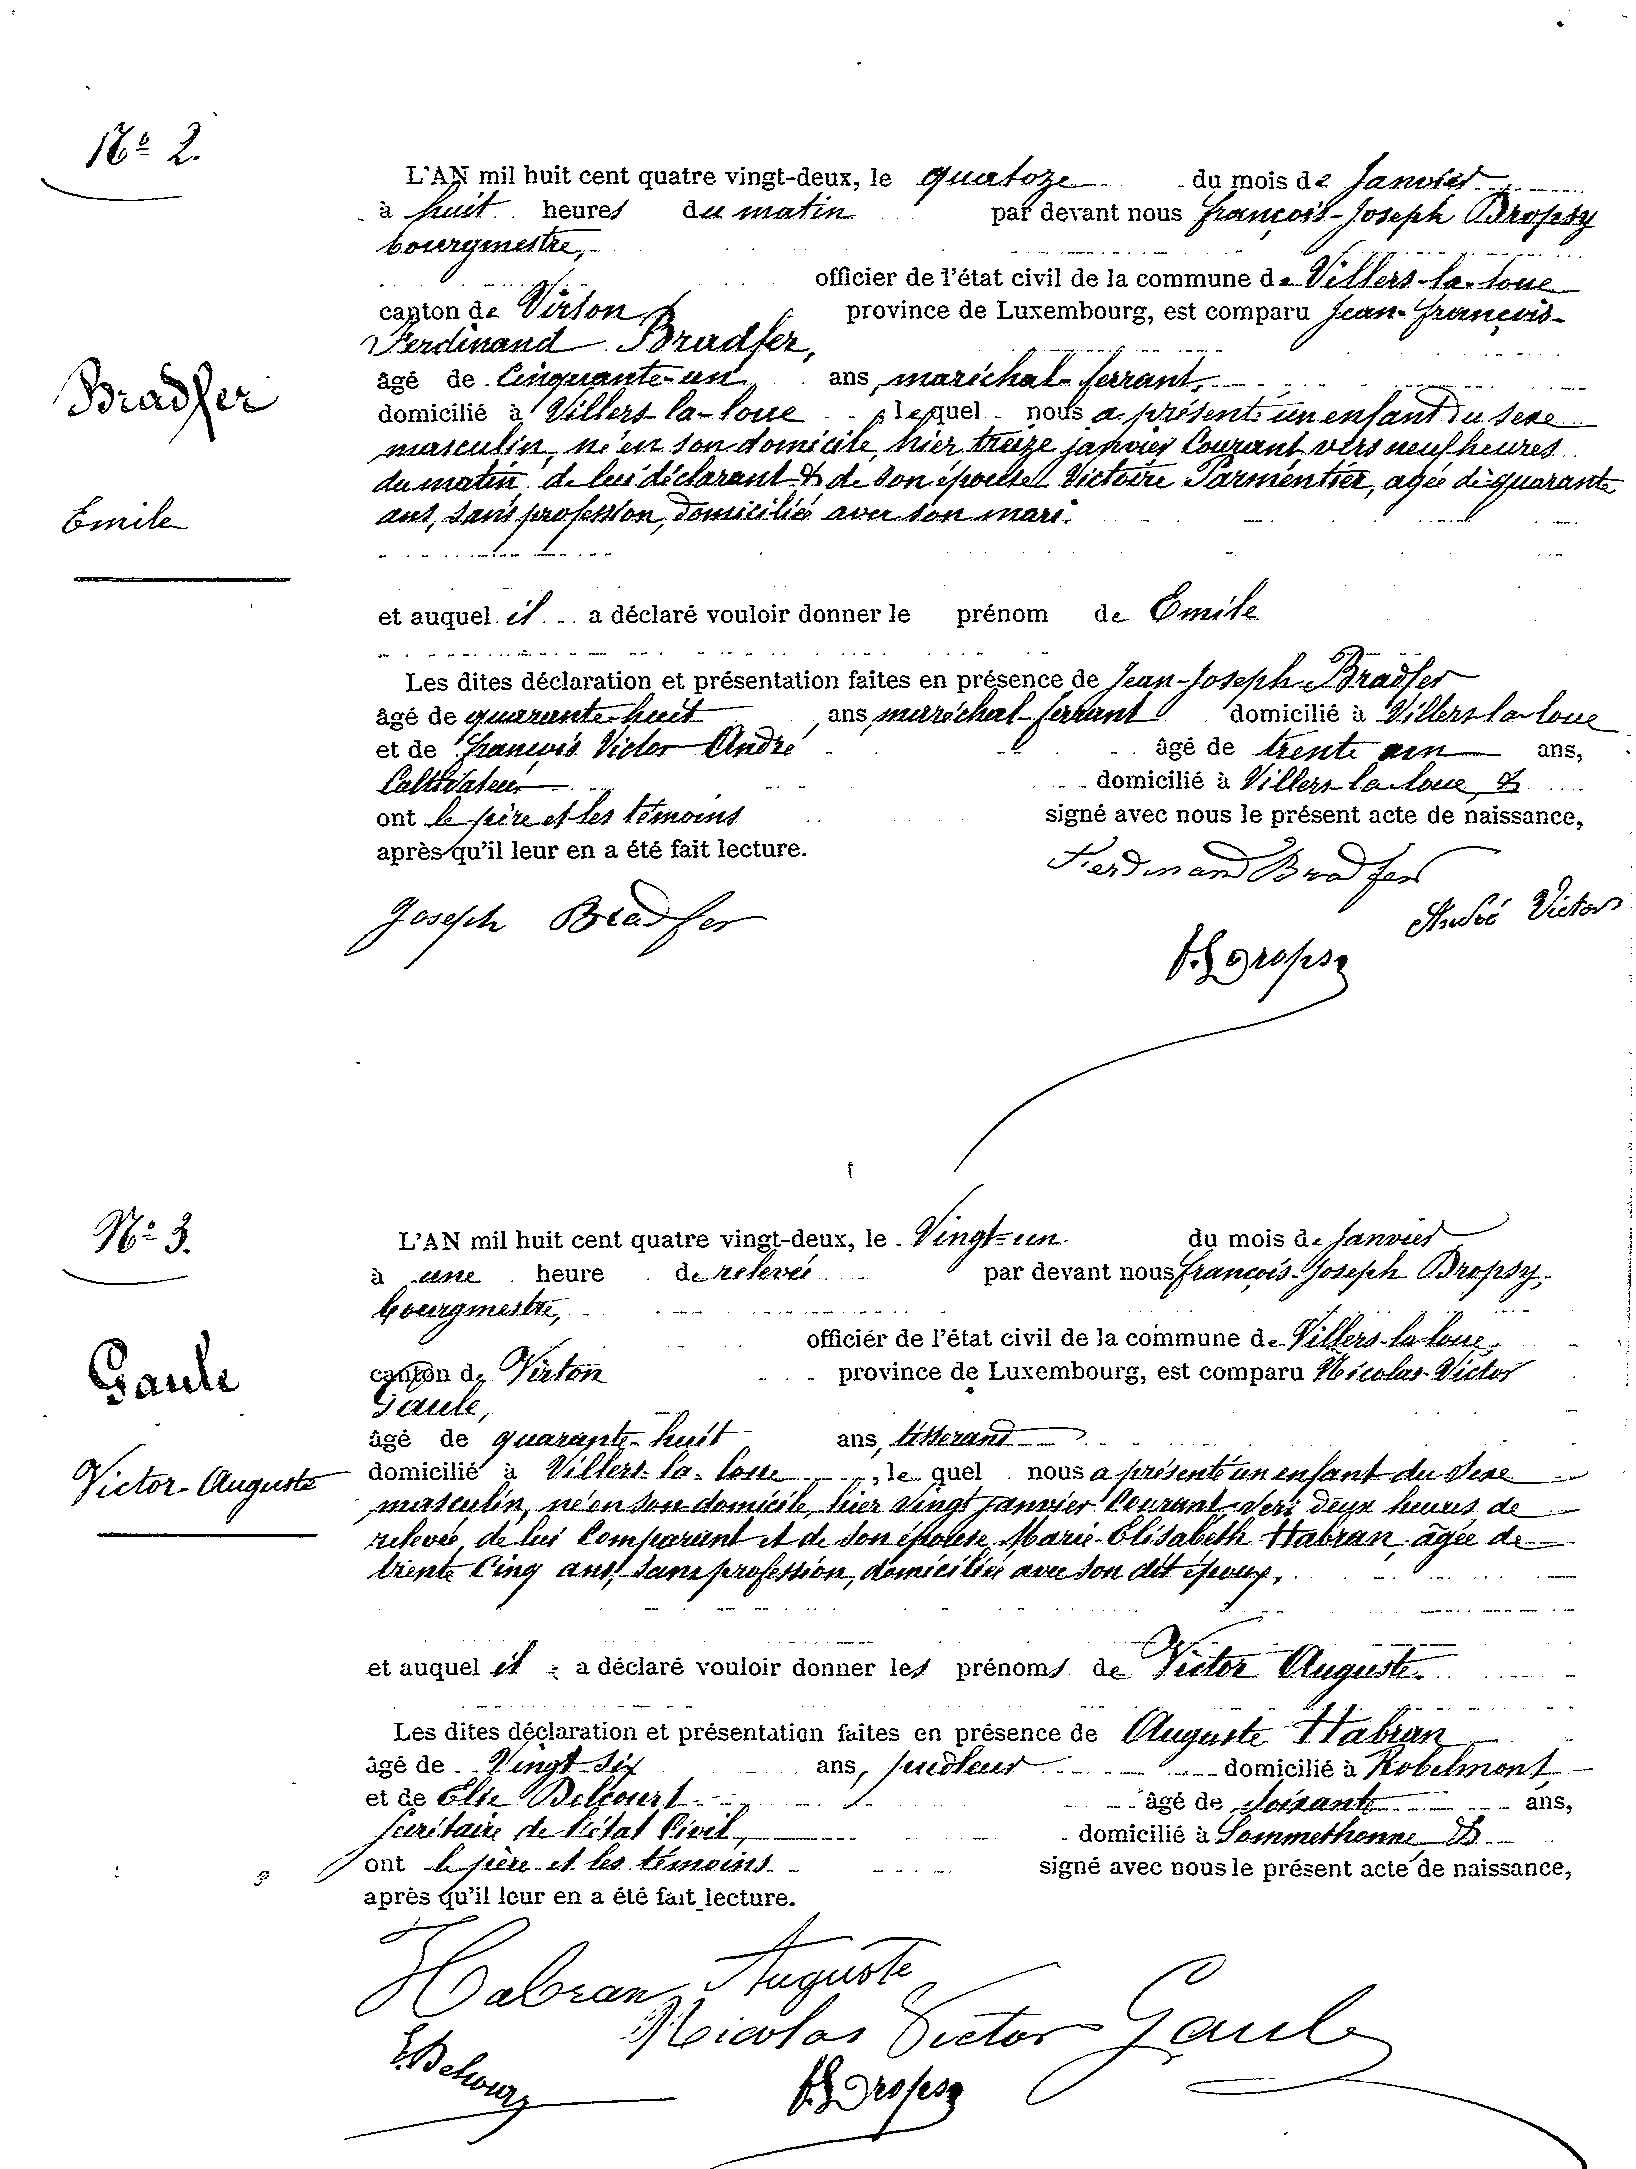 No 2.
L'AN mil huit cent quatre vingt-deux, le quatoze du mois de Janvier
à huit heures du matin par devant nous françois-Joseph Dropsy
bourgmestre,
officier de l'état civil de la commune de Villers-la-loue
canton de Virton province de Luxembourg, est comparu Jean-françois-
Ferdinand Bradfer,
Bradfer
âgé de Cinquante-un ans, maréchal-ferrant,
domicilié à Villers-la-loue, lequel nous a présenté un enfant du sexe
masculin, né en son domicile, hier treize janvier Courant vers neuf heures
du matin, de lui déclarant & de son épouse Victoire Parmentier, agée de quarante
Emile
ans, sans profession, domiciliée avec son mari.
et auquel il a déclaré vouloir donner le prénom de Emile
Les dites déclaration et présentation faites en présence de Jean-Joseph Bradfer
âgé de quarante-huit ans, maréchal-ferrant domicilié à Villers-la-loue
et de françois Victor André âgé de trente un ans,
Cultivateur domicilié à Villers-la-loue, &
ont le père et les témoins signé avec nous le présent acte de naissance,
après qu'il leur en a été fait lecture.
Ferdinand Bradfer
Joseph Bradfer
André Victor
f.J Dropsy
No 3.
L'AN mil huit cent quatre vingt-deux, le Vingt-un du mois de Janvier
à une heure de relevée par devant nous françois-Joseph Dropsy,
bourgmestre,
officier de l'état civil de la commune de Villers-la-loue,
Gaule
canton de Virton province de Luxembourg, est comparu Nicolas-Victor
Gaule,
âgé de quarante-huit ans, tisserand
Victor-Auguste
domicilié à Villers-la-loue, le quel nous a présenté un enfant du sexe
masculin, né en son domicile, hier vingt janvier Courant vers deux heures de
relevée, de lui Comparant et de son épouse Marie-Elisabeth Habran, agée de
trente Cinq ans, sans profession, domiciliée avec son dit époux.
et auquel il a déclaré vouloir donner les prénoms de Victor Auguste.
Les dites déclaration et présentation faites en présence de Auguste Habran
âgé de Vingt-six ans, pudleur domicilié à Robelmont,
et de Elie Delcourt âgé de soixante ans,
secrétaire de l'état Civil, domicilié à Sommethonne, &
ont le père et les témoins signé avec nous le présent acte de naissance,
après qu'il leur en a été fait lecture.
Habran Auguste
Nicolas Victor Gaule
E. Delcourt
f.J Dropsy